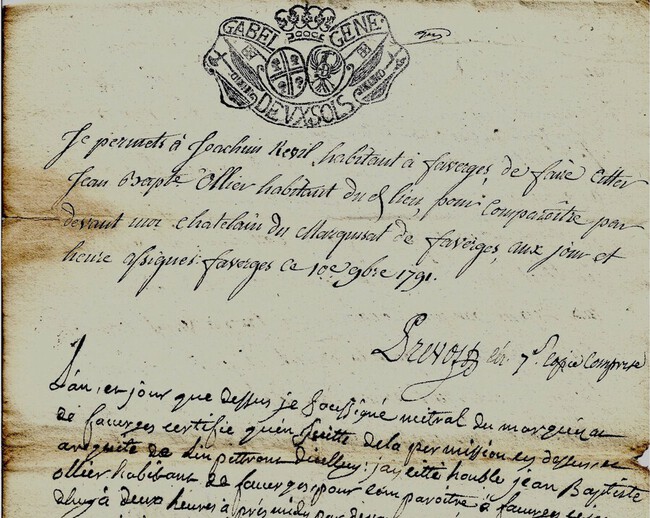 GABEL GENE
DEUX SOLS
Je permets à Joachim Revil habitant à faverges de faire citter
Jean Bapte Ollier habitant du d lieu, pour Comparoître par
devant moi chatelain du Marquisat de faverges, aux jour et
heure assignés. faverges ce 10e 9bre 1791.
Prevost 7s Copie Comprise
L'an, et jour que dessus je soussigné mitral du marquisat
de faverges certifie qu'en suitte de la permission cy dessus, et
a requête de limpettrant d'icelle, j'ay citté honble jean Baptiste
ollier habitant de faverges, pour comparoître à faverges
à deux heures après midy par devant